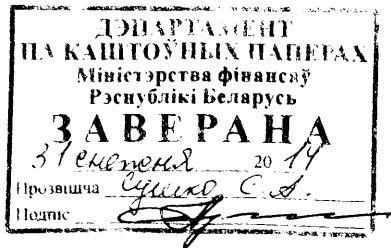 ДЭПАРТАМЕНТ
ПА КАШТОЎНЫХ ПАПЕРАХ
Міністэрства фінансаў
Рэспублікі Беларусь
ЗАВЕРАНА
31 снежня 2014
Прозвішча Сушко С.А.
Подпіс